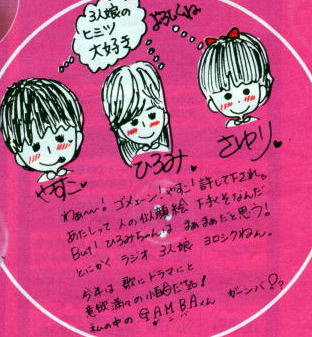 3人娘の
ヒミツ
大好き
よろしくね
やすこ
ひろみ
さゆり
わぁ〜〜! ゴメェーン! やすこ! 許して下され。
あたしって 人の似顔絵 下手くそなんだ
But! ひろみちゃんは まぁまぁだと思う!
とにかく ラジオ 3人娘 ヨロシクねん。
今年は 歌にドラマにと
意欲満々の小百合だぞ!
私の中の GAMBAくん ガーンバ
ガンバ